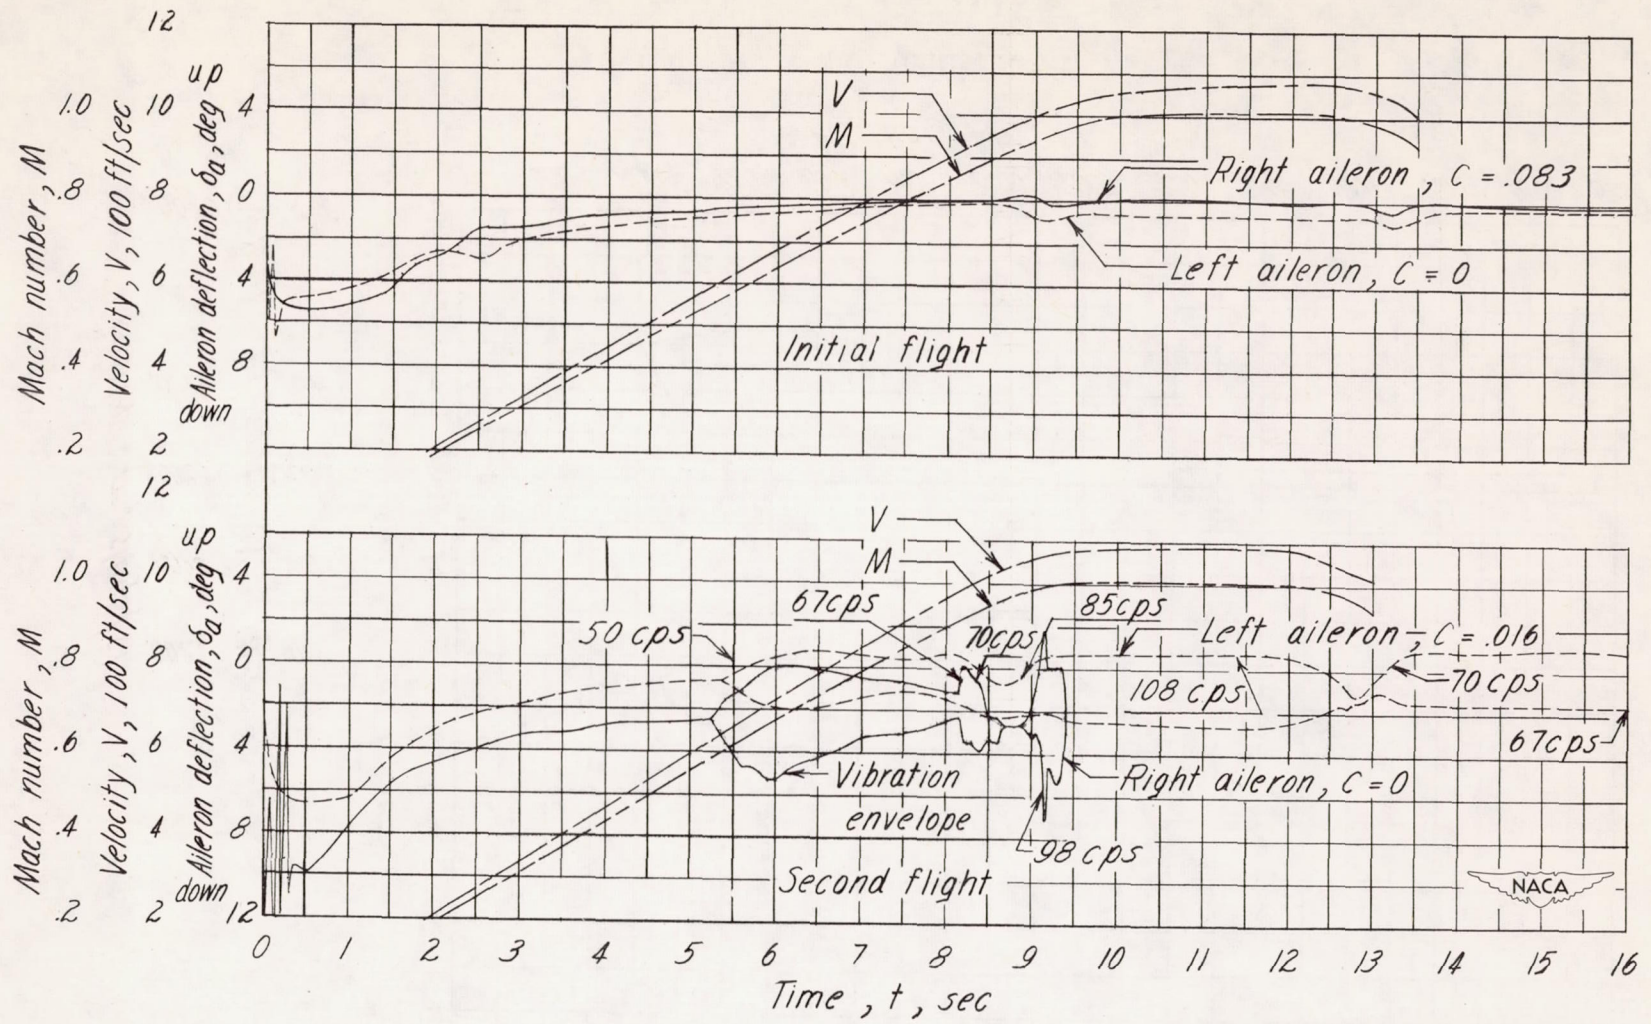 12
up
1.0 10 4
.8 8 0
.6 6 4
.4 4 8
down
.2 2
Mach number, M
Velocity, V, 100 ft/sec
Aileron deflection, δa, deg
V
M
Right aileron, C = .083
Left aileron, C = 0
Initial flight
12
up
1.0 10 4
.8 8 0
.6 6 4
.4 4 8
down
.2 2 12
Mach number, M
Velocity, V, 100 ft/sec
Aileron deflection, δa, deg
V
M
67cps
85cps
50 cps
70cps
Left aileron, C = .016
108 cps
70 cps
67cps
Vibration
envelope
Right aileron, C = 0
98 cps
Second flight
NACA
0 1 2 3 4 5 6 7 8 9 10 11 12 13 14 15 16
Time, t, sec